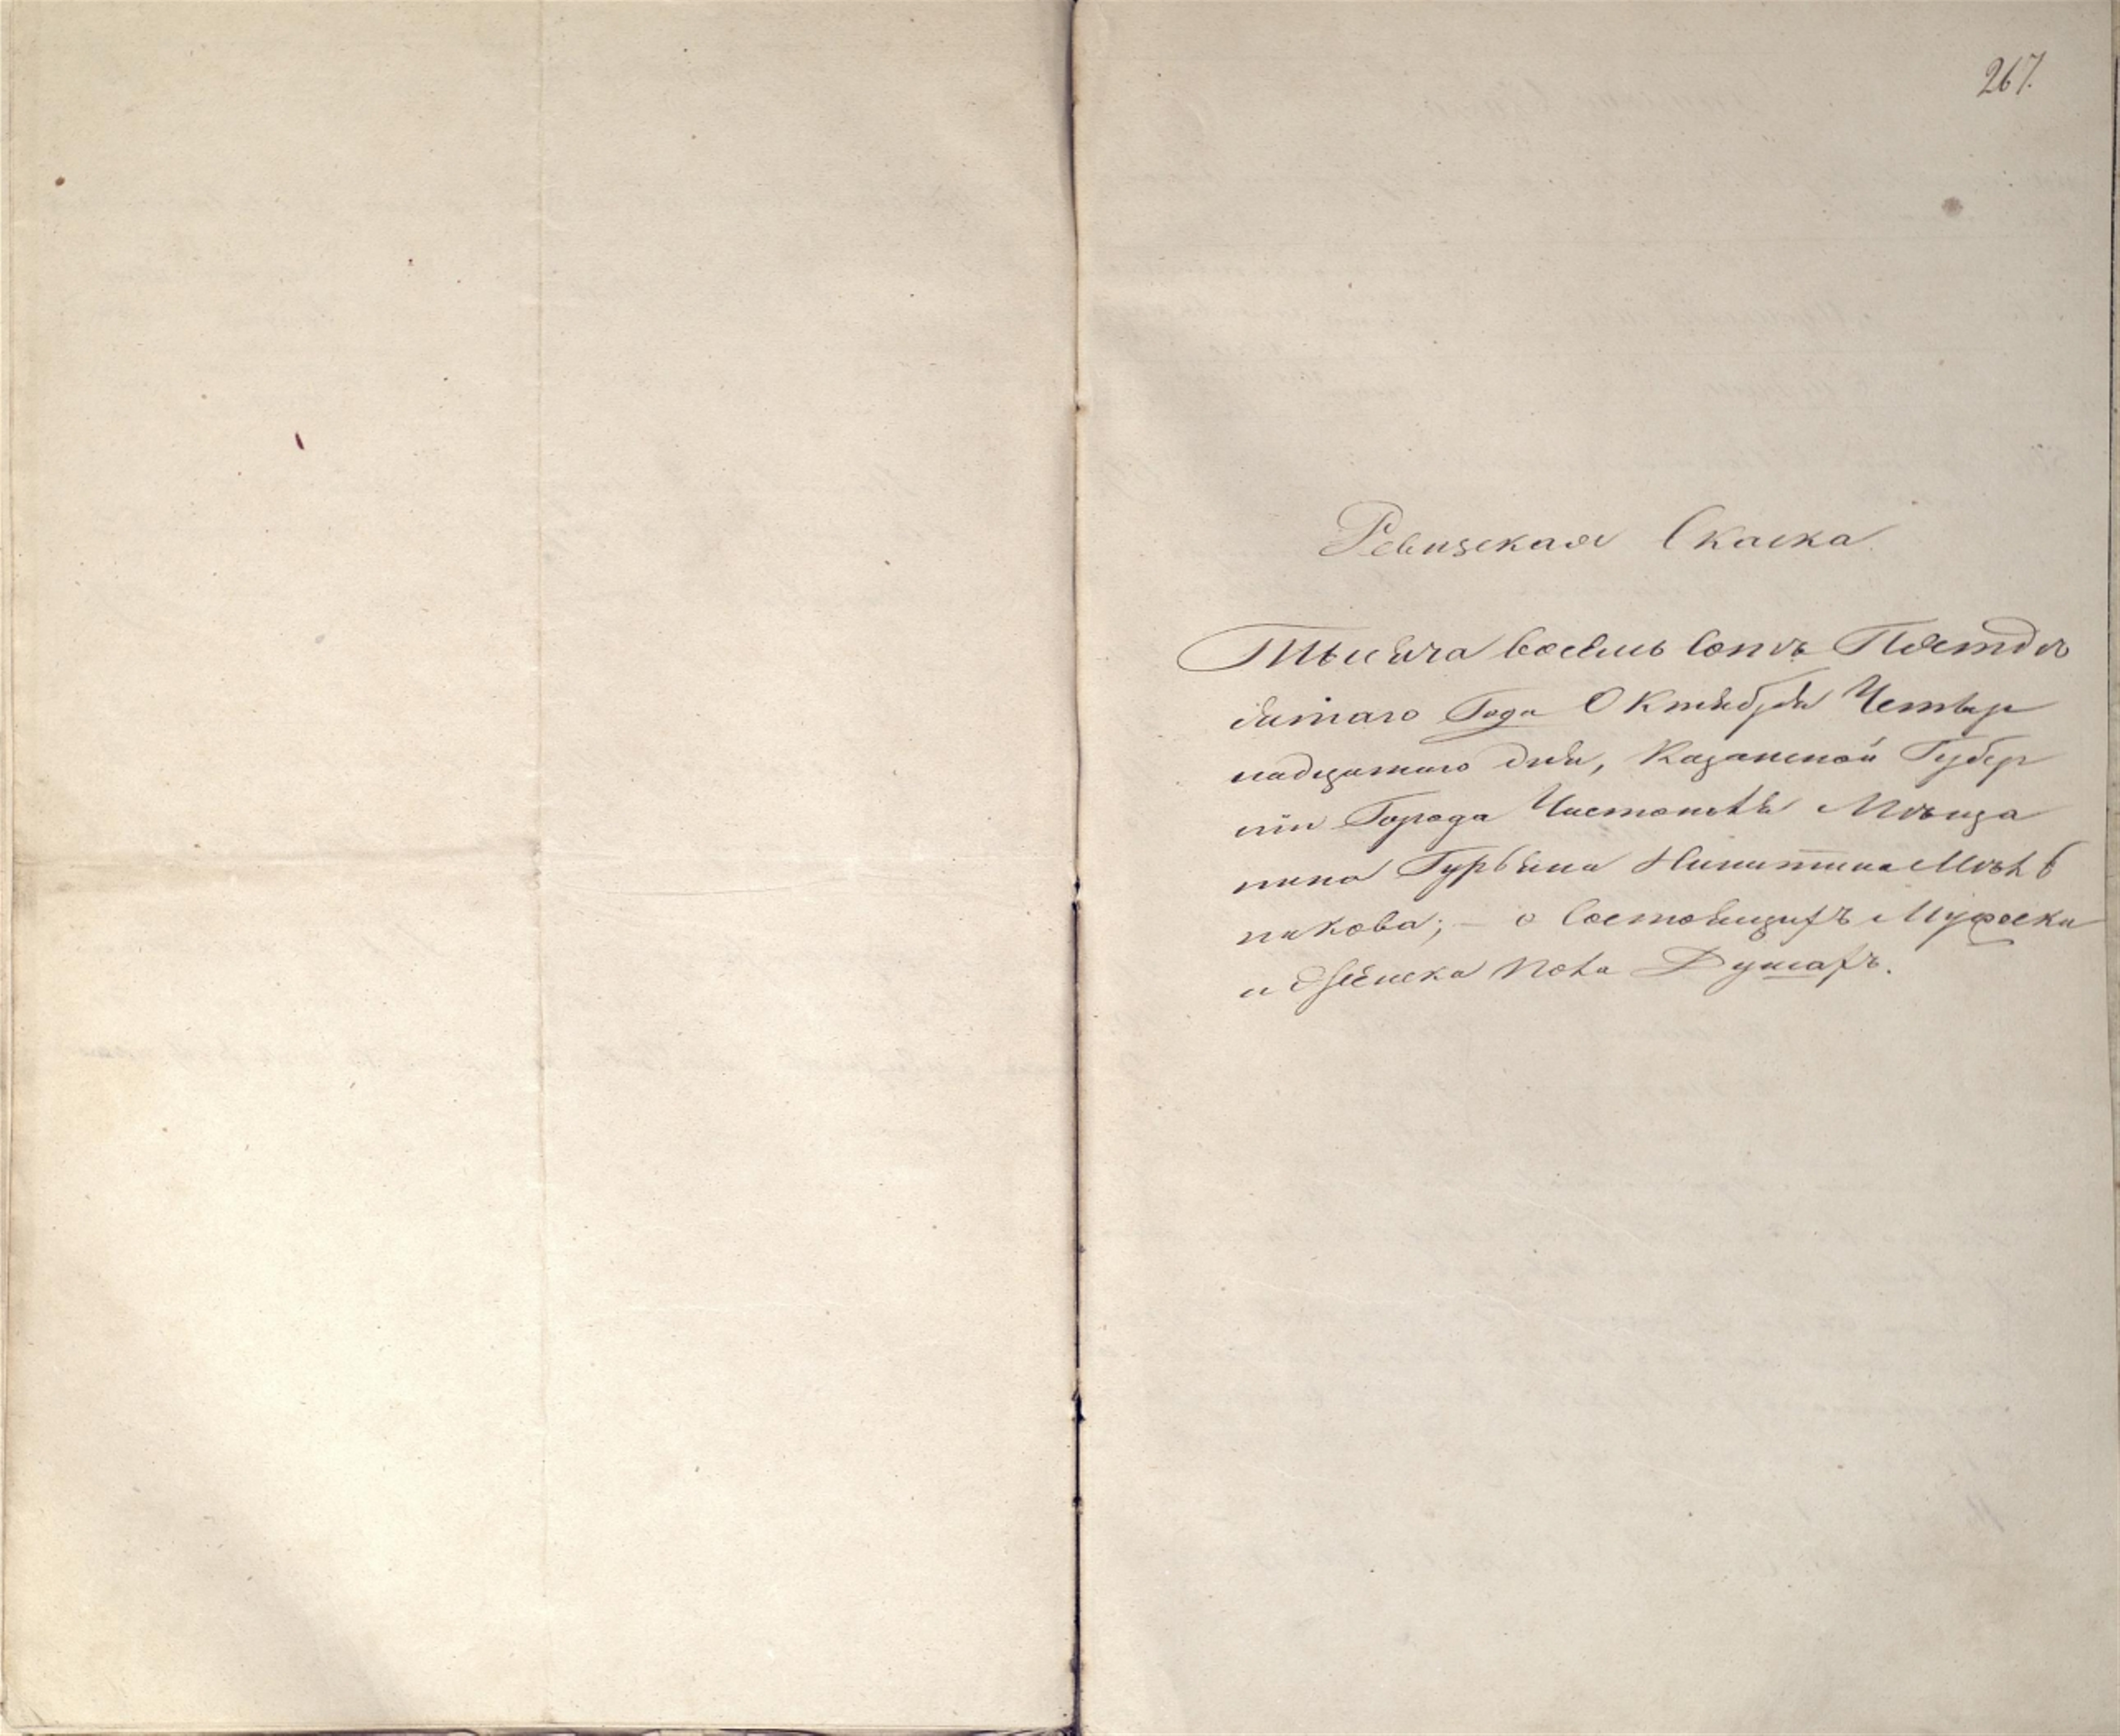 267.
Ревизская Скаска.
Тысяча восемь сотъ Пятдѣ
сятаго Года Октября Четыр
надцатаго дня, Казанской Губер
ніи Города Чистополя Мѣща
нина Гурьяна Никитина
никова; – о состоящихъ Мужеска
и Женска пола Душахъ.